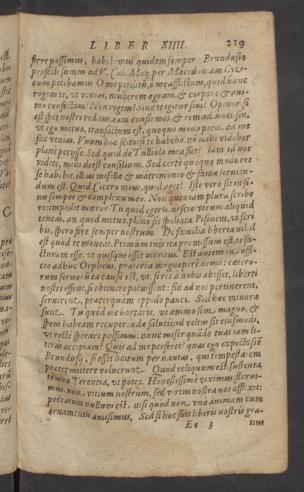 LIBER XIIII. 219
ferre possimus, habebimus quidem semper. Brundusio
profecti sumus ad V. Cal. Maij per Macedoniam Cyzi-
cum petebamus. O me perditum, o me afflictum, quid nunc
rogem te, ut venias, mulierem ægram, & corpore & ani-
mo confectam? Non rogem? Sine te igitur sim? Opinor, si
est spes nostri reditus, eam confirmes, & rem adiuues: sin,
ut ego metuo, transactum est, quoquo modo potes, ad me
fac venias. Vnum hoc scito: si te habebo, non mihi videbor
plane perijsse. Sed quid de Tulliola mea fiet? Iam id vos
videte, mihi deest consilium. Sed certe quoquo modo res
se habebit, illius misellæ & matrimonio & famæ seruien-
dum est. Quid? Cicero meus quid aget? Iste vero sit in si-
nu semper & complexu meo. Non queo iam plura scribere
impedit mœror. Tu quid egeris, nescio: virum aliquid
teneas, an quod metuo, plane sis spoliata. Pisonem, ut scri-
bis, spero fore semper nostrum. De familia liberata nihil
est quod te moueat. Primum tuis ita promissum est, te fa-
cturam esse, ut quisque esset meritus. Est autem in offi-
cio adhuc Orpheus, præterea magnopere nemo: cætero-
rum seruorum ea causa est, ut, si res à nobis abisset, liberti
nostri essent, si obtinere potuissent: sin ad nos pertinerent,
seruirent, præterquam oppido pauci. Sed hæc minora
sunt. Tu quod me hortaris, ut animo sim magno, &
spem habeam recuperandæ salutis: id velim sit eiusmodi,
ut recte sperare possimus: nunc miser quando tuas iam li-
teras accipiam? Quis ad me perferet? quas ego expectassem
Brundusij, si esset licitum per nautas, qui tempestatem
prætermittere noluerunt. Quod reliquum est, sustenta
te mea Terentia, ut potes. Honestissime viximus, floruimus:
non vitium nostrum, sed virtus nostra nos afflixit:
peccatum nullum est, nisi quod non vnà animam cum
ornamentis amisimus. Sed si hoc fuit liberis nostris gra-
Ee 3 tius